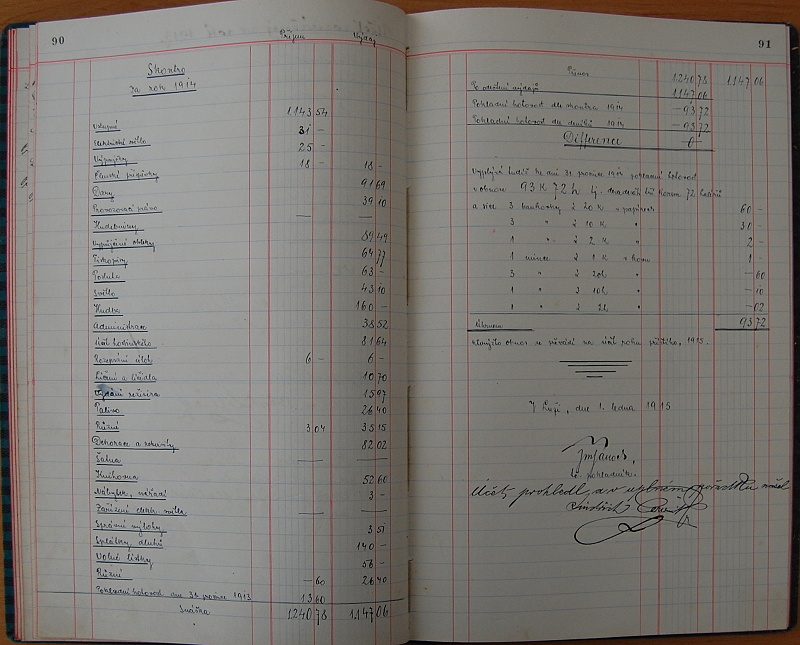 90
Příjem Výdaj
Skontro
za rok 1914
Vstupné 1143 54
Elektrické světlo 31 –
Výpomoci 25 –
Členské příspěvky 18 – 18 –
Dary 91 69
Provozovací právo 39 10
Hudebniny — —
Vypůjčené obleky 89 49
Tiskopisy 64 77
Posluha 63 –
Světlo 43 10
Hudba 160 –
Administrace 38 52
Účet hostinského 81 64
Rozeprání účtů 6 – 6 –
Líčení a líčidla 10 70
Vydání režiséra 15 97
Palivo 26 40
Různé 3 04 35 15
Dekorace a rekvisity 82 02
Šatna — —
Knihovna 52 60
Nábytek, nářadí 3 –
Zařízení elektr. světla — —
Správní výlohy 3 51
Splátky dluhů 140 –
Volné lístky 56 –
Různé – 60 26 40
Pokladní hotovost dne 31. prosince 1913 13 60
Snáška 1240 78 1147 06
91
Přenos 1240 78 1147 06
Po odečtení výdajů 1147 06
Pokladní hotovost dle skontra 1914 – 93 72
Pokladní hotovost dle deníku 1914 – 93 72
Difference – 0 –
Vyplývá tudíž ke dni 31. prosince 1914 pokladní hotovost
v obnose 93 K 72 h tj. devadesát tři korun 72 haléřů
a sice 3 bankovky à 20 K v papírech 60 –
3 " à 10 K " 30 –
1 " à 2 K " 2 –
1 mince à 1 K v kovu 1 –
3 " à 20h " – 60
1 " à 10h " – 10
1 " à 2h " – 02
Úhrnem 93 72
kterýžto obnos se převádí na účet roku příštího, 1915.
V Luži, dne 1. ledna 1915
Jm Janeček,
t. č. pokladník.
Účet prohledl, a v úplném pořádku našel
Jindřich